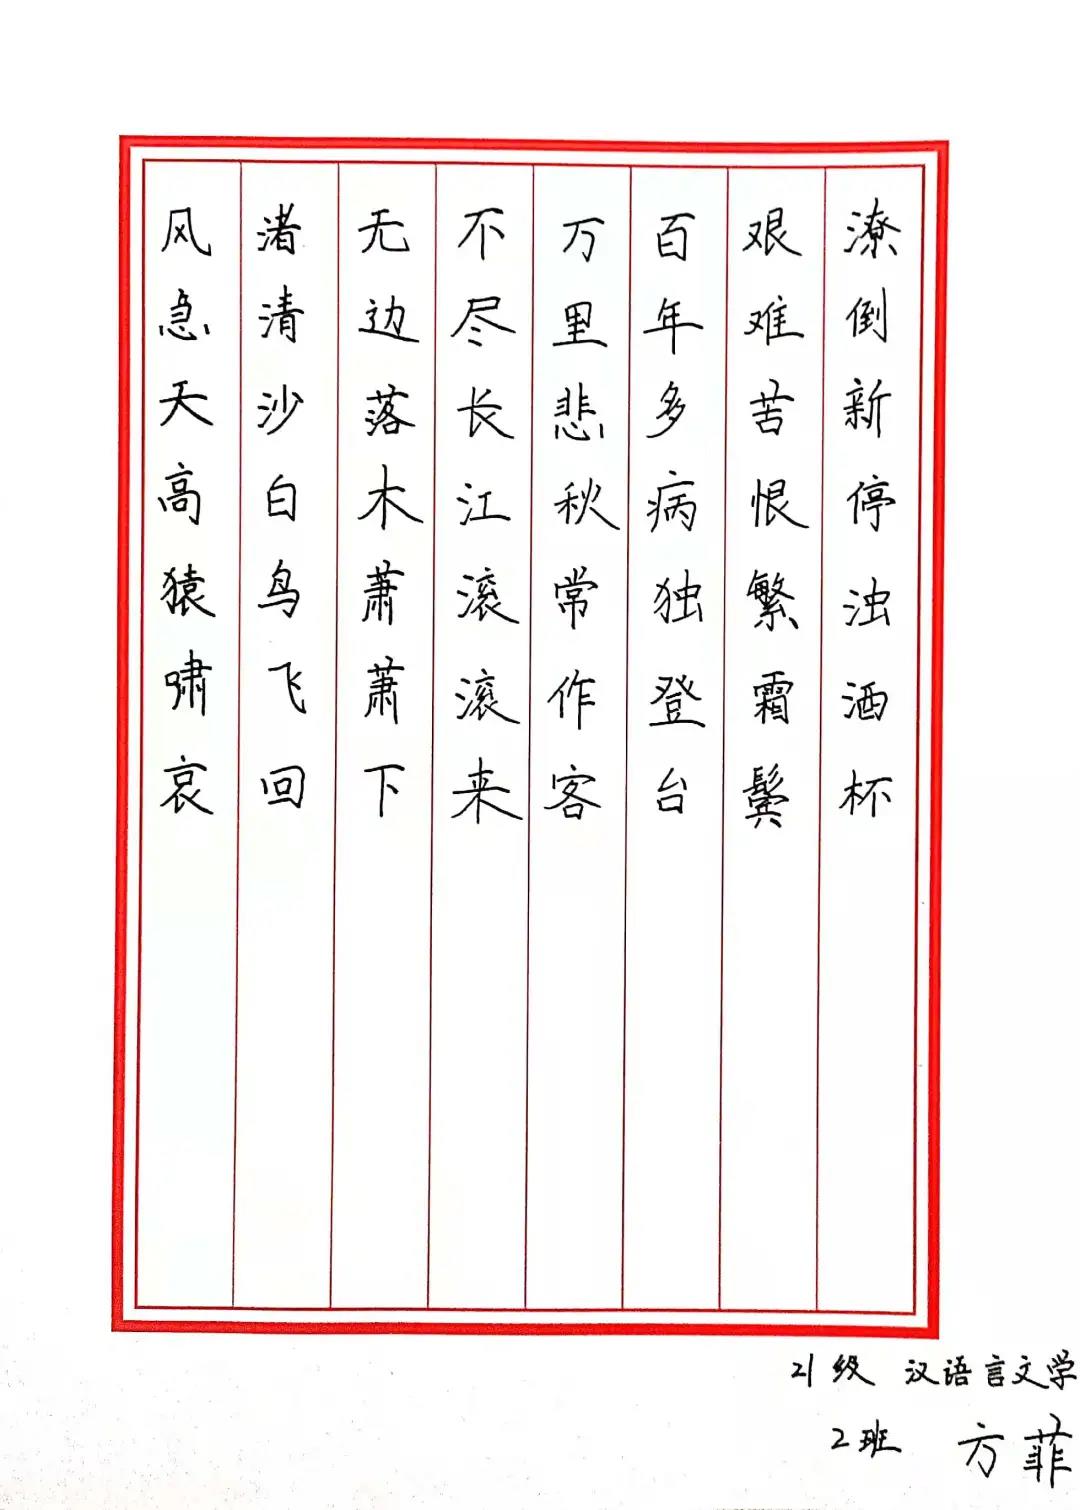 风急天高猿啸哀
渚清沙白鸟飞回
无边落木萧萧下
不尽长江滚滚来
万里悲秋常作客
百年多病独登台
艰难苦恨繁霜鬓
潦倒新停浊酒杯
21级 汉语言文学
2班 方菲